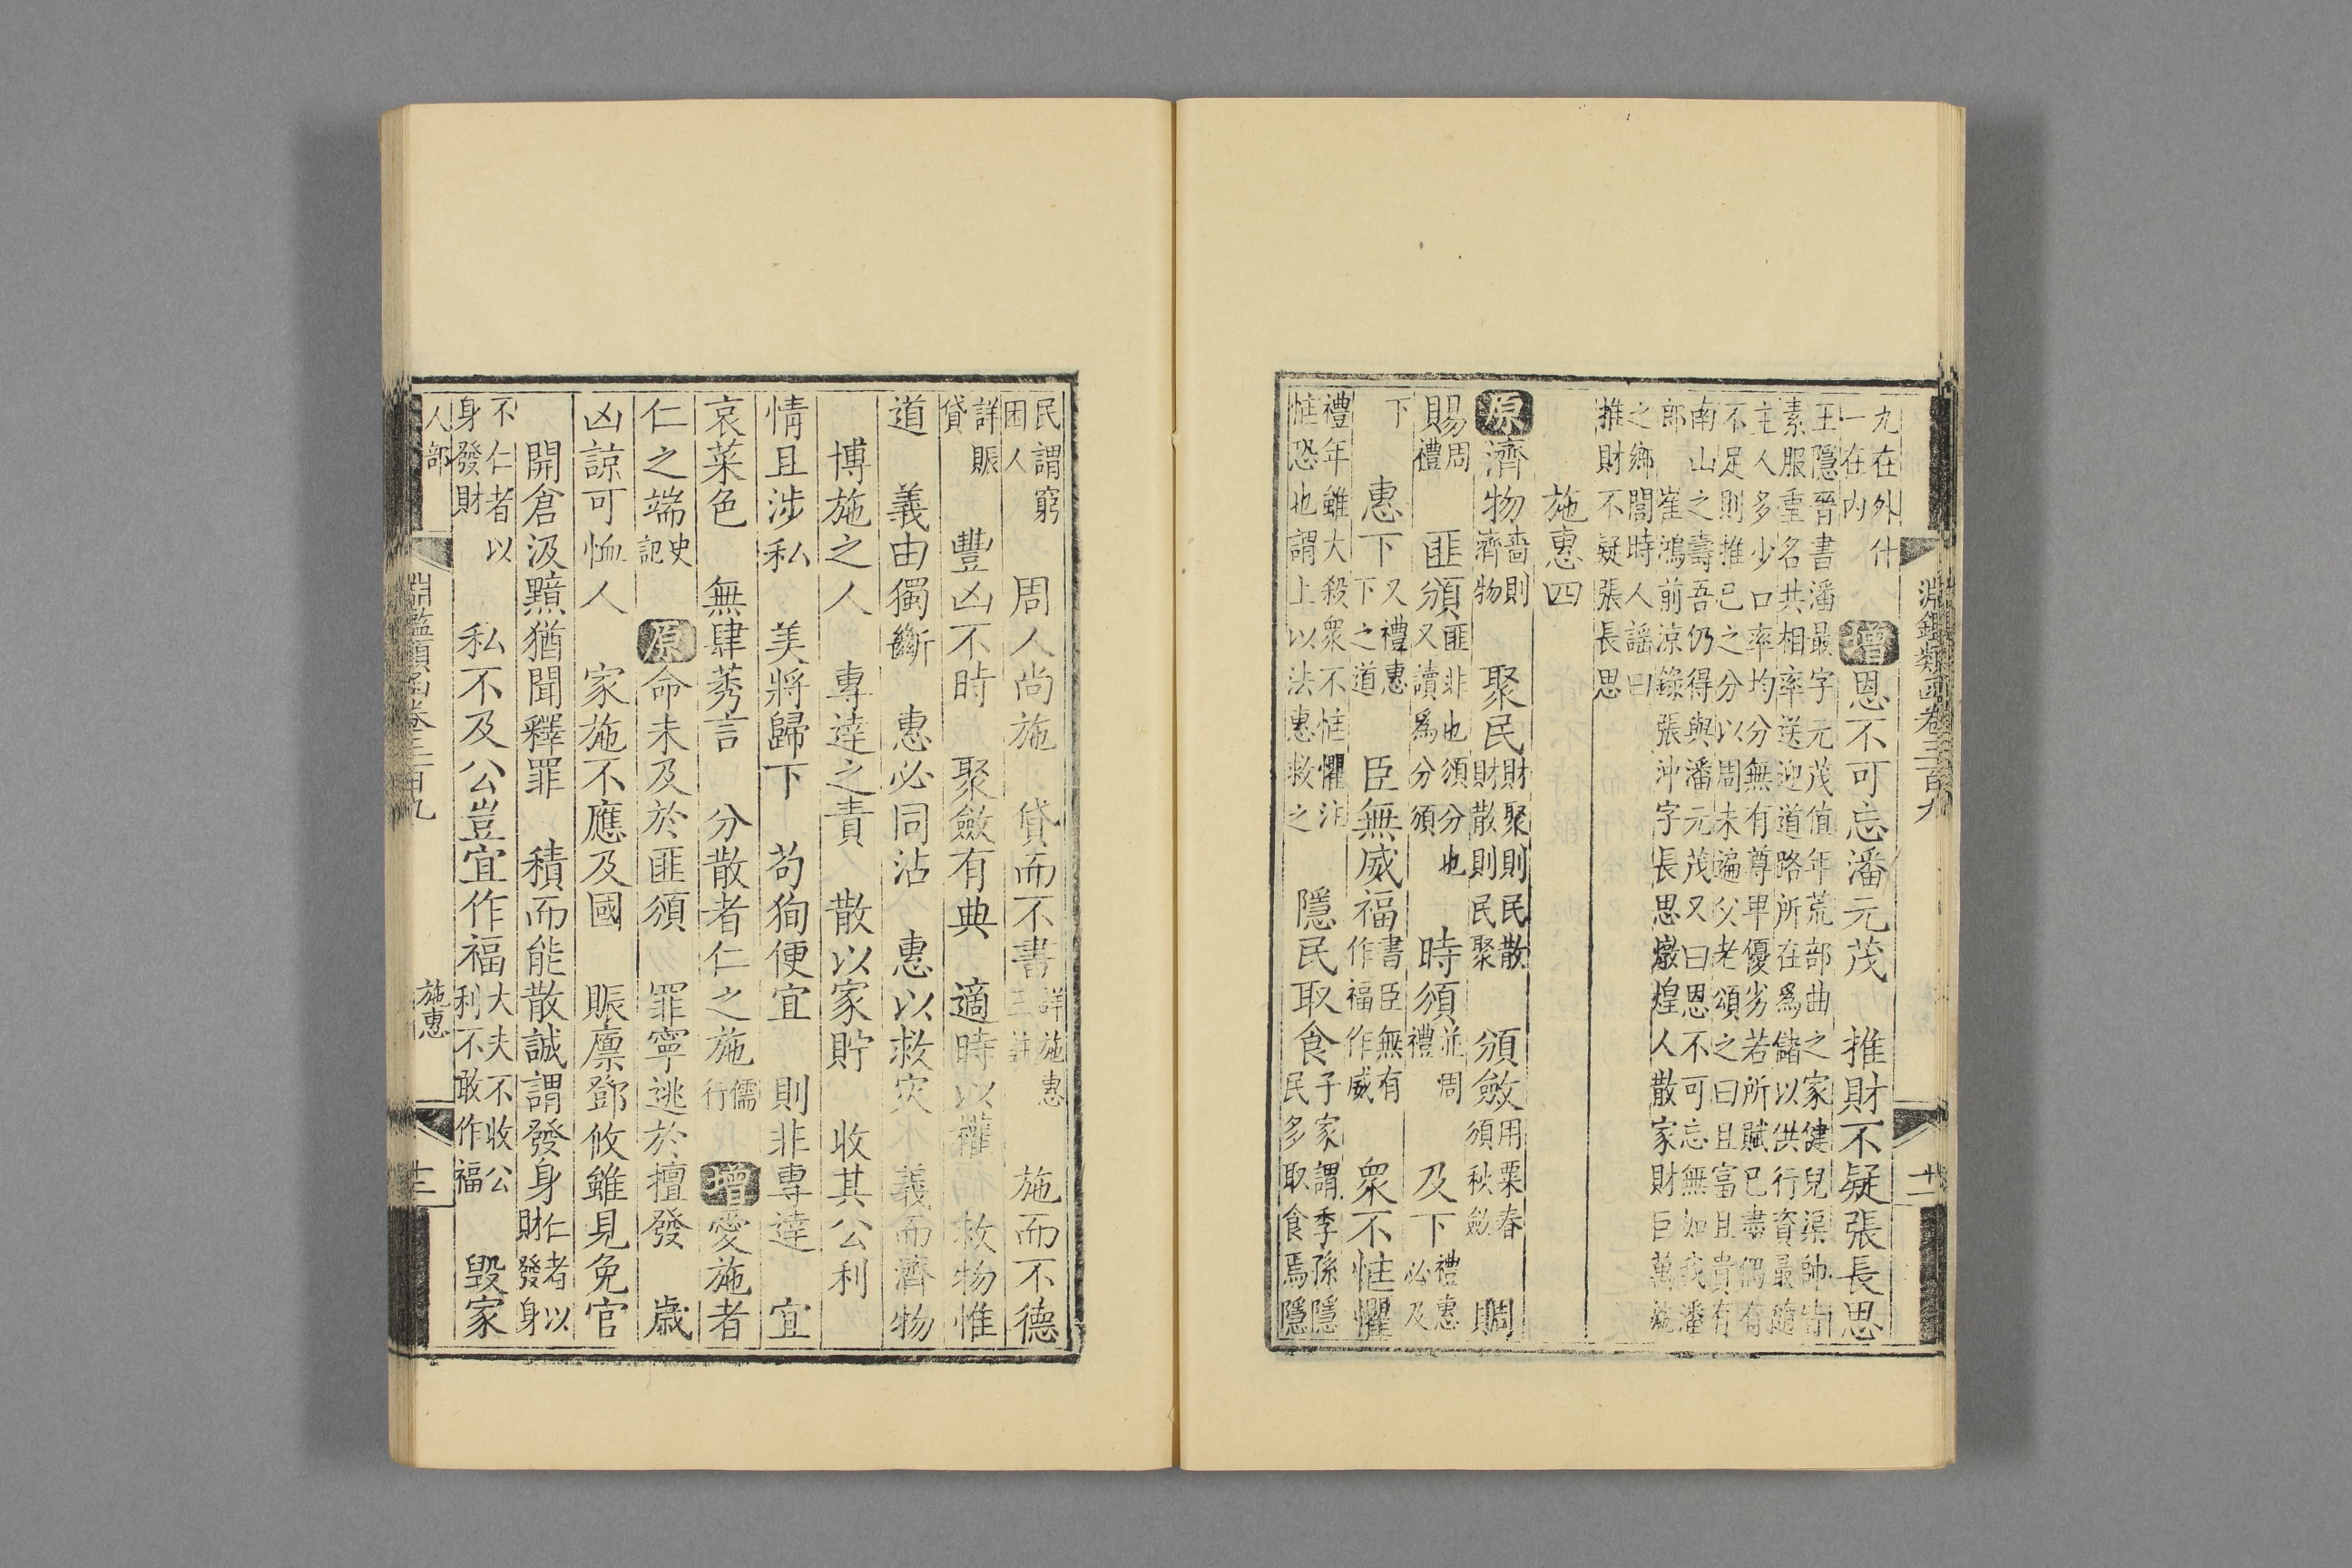 淵鑑類函卷三百九
十二
九在外什
一在內
增恩不可忘潘元茂 推財不疑張長思
王隱晉書潘最字元茂值年荒部曲之家健兒渠帥皆
素服重名共相率送迎道路所在爲儲以供行資最隨
主人多少口率均分無有尊卑優劣若所賦已盡偶有
不足則推己之分以周未遍父老頌之曰且富且貴有
南山之壽吾仍得與潘元茂又曰恩不可忘無如我潘
郎 崔鴻前涼錄張沖字長思燉煌人散家財巨萬施
之鄉閭時人謡曰
推財不疑張長思
施惠四
原濟物嗇則濟物 聚民財聚則民散財散則民聚 頒斂用粟春頒秋斂 賙
賜周禮 匪頒匪非也頒分也又讀爲分頒 時頒並周禮 及下禮惠必及
下 惠下又禮惠下之道 臣無威福書臣無有作福作威 衆不恇懼
禮年雖大殺衆不恇懼注
恇恐也謂上以法惠救之 隱民取食子家謂季孫隱民多取食焉隱
民謂窮
困人 周人尚施 貸而不書詳施惠三註 施而不德
詳賑
貸 豐凶不時 聚斂有典 適時以權 救物惟
道 義由獨斷 惠必同沾 惠以救灾 義而濟物
博施之人 專達之責 散以家貯 收其公利
情且涉私 美將歸下 苟狥便宜 則非專達 宜
哀菜色 無肆莠言 分散者仁之施儒行 增愛施者
仁之端史記 原命未及於匪頒 罪寧逃於擅發 歲
凶諒可恤人 家施不應及國 賑廪鄧攸雖見免官
開倉汲黯猶聞釋罪 積而能散誠謂發身仁者以財發身
不仁者以
身發財 私不及公豈宜作福大夫不收公利不敢作福 毀家
人部
淵鑑類函卷三百九
施惠
十三